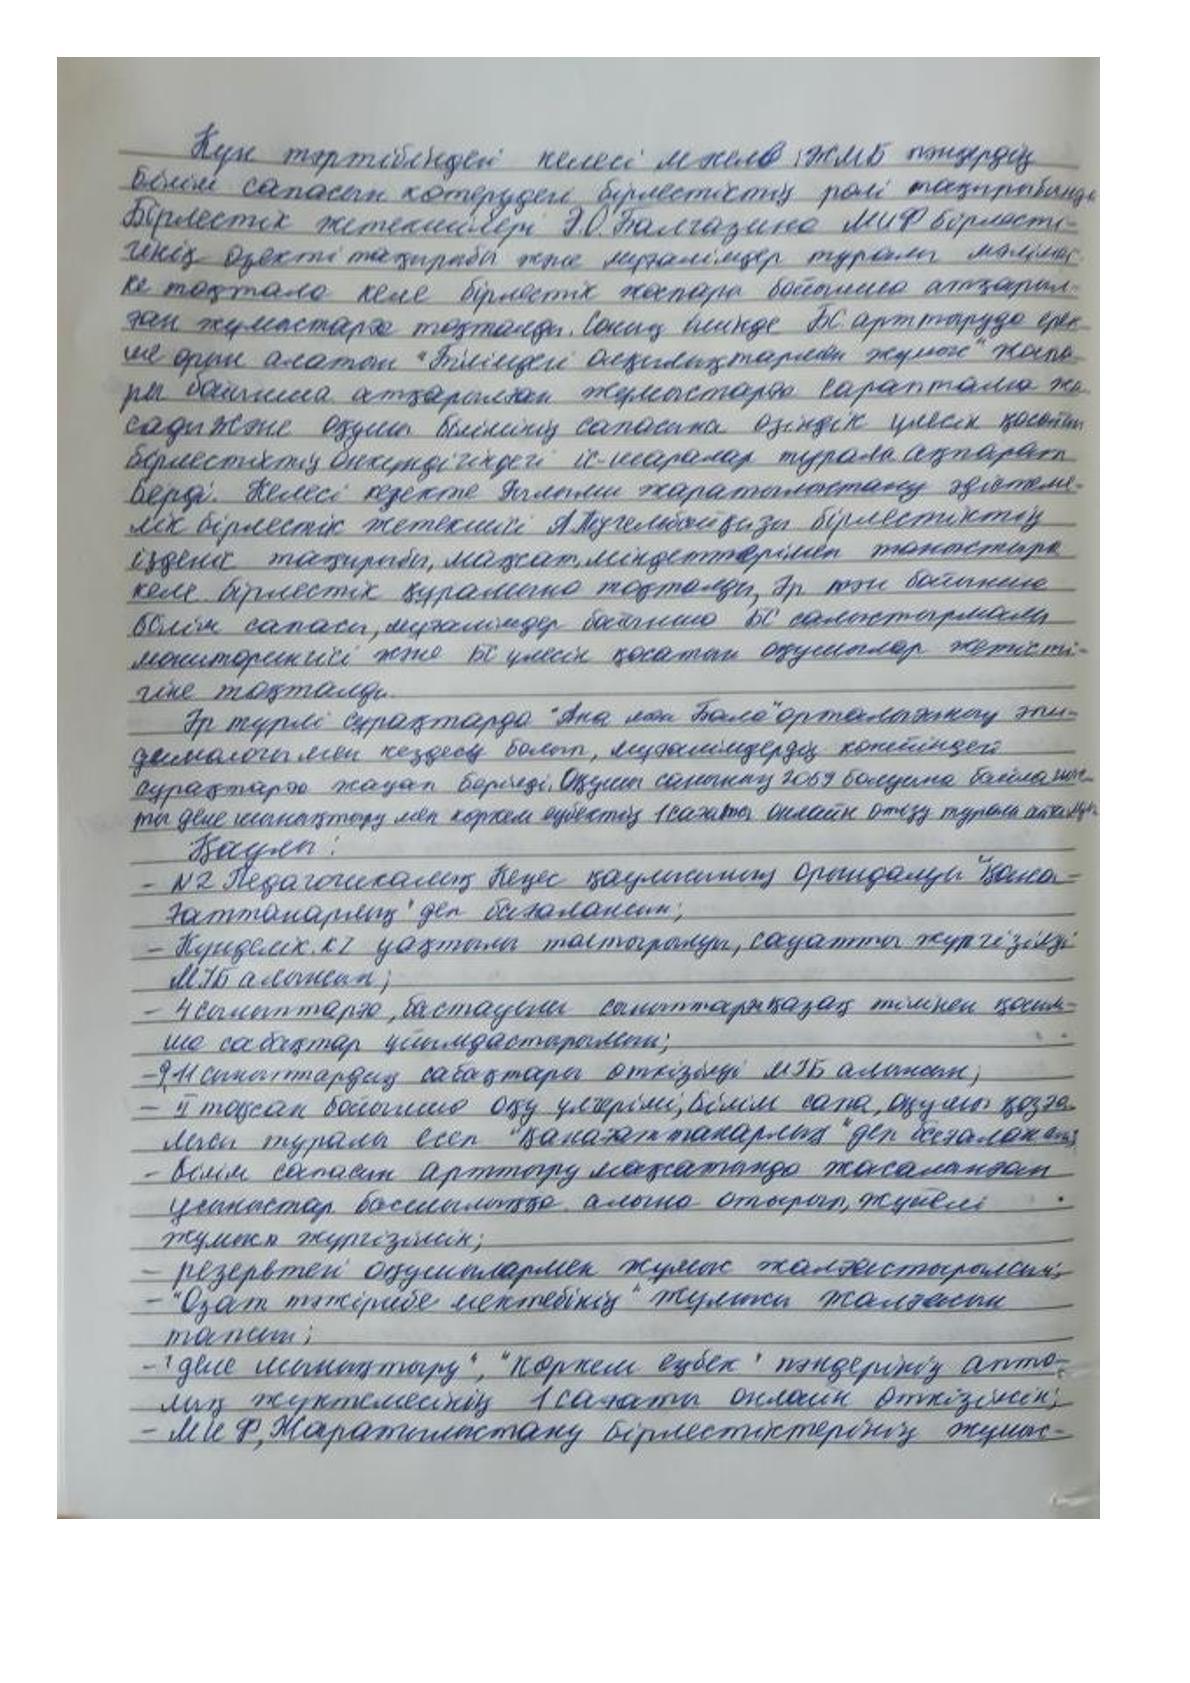 Күн тәртібіндегі келесі мәселе ЖМБ пәндердің
білім сапасын көтерудегі бірлестіктің рөлі тақырыбында
Бірлестік жетекшілері Э.О.Балгазина МИФ бірлесті-
гінің өзекті тақырыбы және мұғалімдер туралы мәлімет-
ке тоқтала келе бірлестік жоспары бойынша атқарыл-
ған жұмыстарға тоқталды. Соның ішінде БС арттыруда ерек-
ше орын алатын "Біліміндегі олқылықтармен жұмыс" жоспа-
ры бойынша атқарылған жұмыстарға сараптама жа-
сады және оқушы білімінің сапасына өзіндік үлесін қосатын
бірлестіктің онкүндігіндегі іс-шаралар туралы ақпарат
берді. Келесі кезекте Ғылыми жаратылыстану әдістеме-
лік бірлестік жетекшісі бірлестіктің
ізденіс тақырыбы, мақсат, міндеттерімен таныстыра
келе бірлестік құрамына тоқталды, Әр пән бойынша
білім сапасы, мұғалімдер бойынша БС салыстырмалы
мониторингісі және БС үлесін қосатын оқушылар жетісті-
гіне тоқталды.
Әр түрлі сұрақтарда "Ана мен Бала" орталығының эпи-
демиологы мен кездесу болып, мұғалімдердің көкейіндегі
сұрақтарға жауап берілді. Оқушы санының 2069 болуына байланыс-
ты дене шынықтыру мен көркем еңбектің 1 сағаты онлайн өткізу туралы айтылды
Қаулы:
- №2 Педагогикалық Кеңес қаулысының орындалуы "Қана-
ғаттанарлық" деп бағалансын;
- Күнделік.kz уақтылы толтырылуы, сауатты жүргізілуі
МҒБ алынсын;
- 4 сыныптарға, бастауыш сыныптарға қазақ тілінен қосым-
ша сабақтар ұйымдастырылсын;
- 9,11 сыныптардың сабақтары өткізілуі МҒБ алынсын;
- II тоқсан бойынша оқу үлгерімі, білім сапа, оқушы қозға-
лысы туралы есеп "қанағаттанарлық" деп бағалансын;
- білім сапасын арттыру мақсатында жасалынған
ұсыныстар басшылыққа алына отырып, жүйелі
жұмыс жүргізілсін;
- резервтегі оқушылармен жұмыс жалғастырылсын;
- "Озат тәжірибе мектебінің" жұмысы жалғасын
тапсын;
- "дене шынықтыру", "көркем еңбек" пәндерінің апта-
лық жүктемесінің 1 сағаты онлайн өткізілсін;
- МИФ, Жаратылыстану бірлестіктерінің жұмыс-